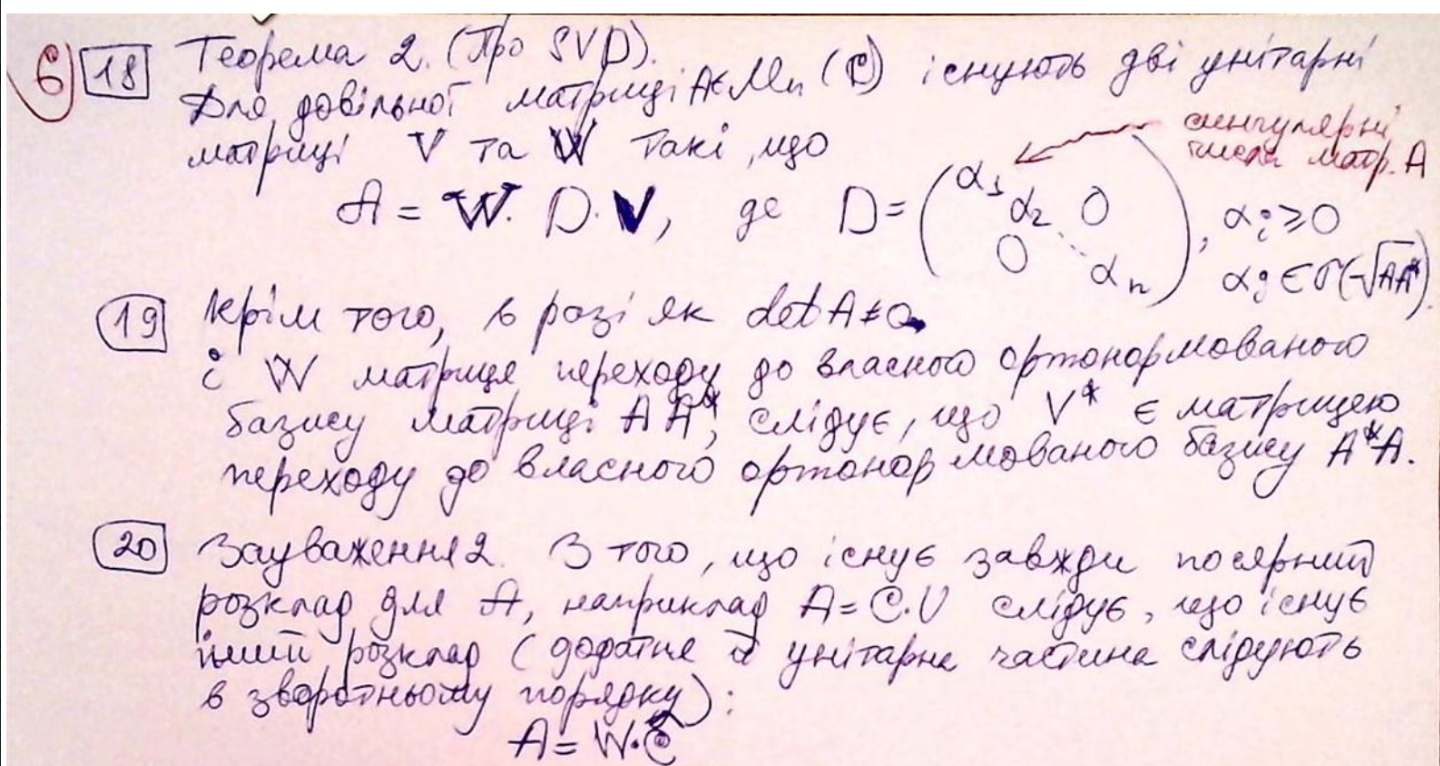 6) 18 Теорема 2. (Про SVD).
Для довільної матриці A∈Mn (C) існують дві унітарні
матриці V та W такі, що
сингулярні числа матр. A
A = W · D · V, де D = ( α1 α2 0 0 ⋱ αn ), αi ≥ 0
αj ∈ σ(√AA*).
19 Крім того, в разі як det A ≠ 0
і W матриця переходу до власного ортонормованого
базису матриці AA*, слідує, що V* є матрицею
переходу до власного ортонормованого базису A*A.
20 Зауваження 2. З того, що існує завжди полярний
розклад для A, наприклад A = C·U слідує, що існує
інший розклад (додатна й унітарна частина слідують
в зворотньому порядку):
A = W·C